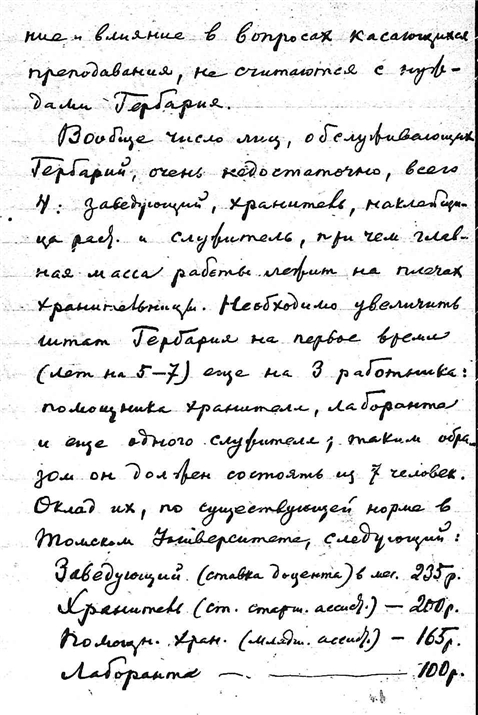 ние и влияние в вопросах касающихся
преподавания, не считаются с нуж-
дами Гербария.
Вообще число лиц, обслуживающих
Гербарий, очень недостаточно, всего
4: заведующий, хранитель, наклейщи-
ца раст. и служитель, при чем глав-
ная масса работы лежит на плечах
хранительницы. Необходимо увеличить
штат Гербария на первое время
(лет на 5–7) еще на 3 работника:
помощника хранителя, лаборанта
и еще одного служителя; таким обра-
зом он должен состоять из 7 человек.
Оклад их, по существующей норме в
Томском Университете, следующий:
Заведующий (ставка доцента) в мес. 235р.
Хранитель (ст. старш. ассист.) – 200р.
Помощн. хран. (младш. ассист.) – 165р.
Лаборанта — . — 100р.